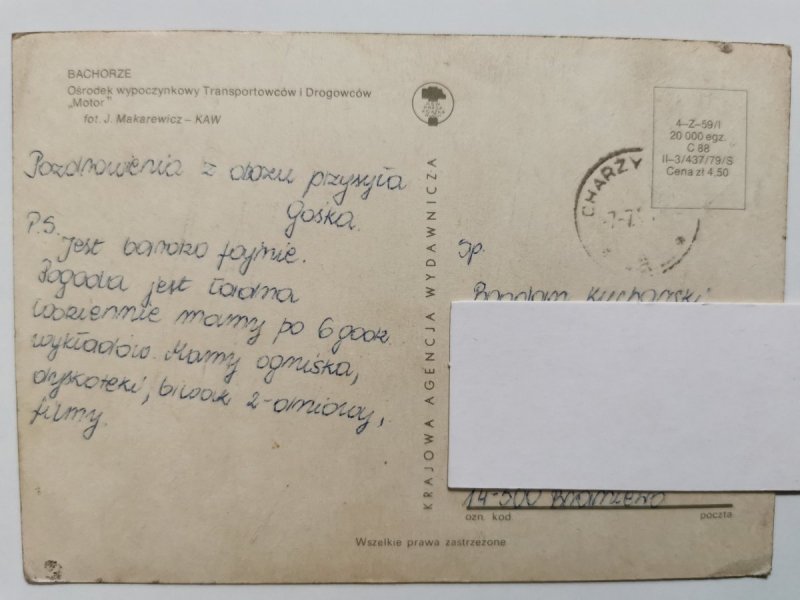 BACHORZE
Ośrodek wypoczynkowy Transportowców i Drogowców
„Motor”
fot. J. Makarewicz – KAW
Pozdrowienia z obozu przysyła
Gośka.
P.S.
Jest bardzo fajnie.
Pogoda jest ładna
codziennie mamy po 6 godz.
wykładów. Mamy ogniska,
dyskoteki, biwak 2-dniowy,
filmy.
KRAJOWA AGENCJA WYDAWNICZA
4–Z–59/I
20 000 egz.
C 88
II–3/437/79/S
Cena zł 4,50
CHARZY
Sp.
Bogdan
14-500 Braniewo
ozn. kod. poczta
Wszelkie prawa zastrzeżone